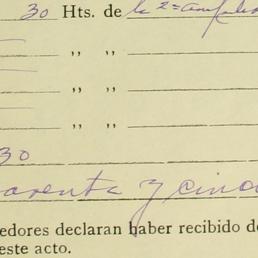 30 Hts. de la 2ª
" "
" "
" "
30
arenta y cinc
edores declaran haber recibido de
este acto.